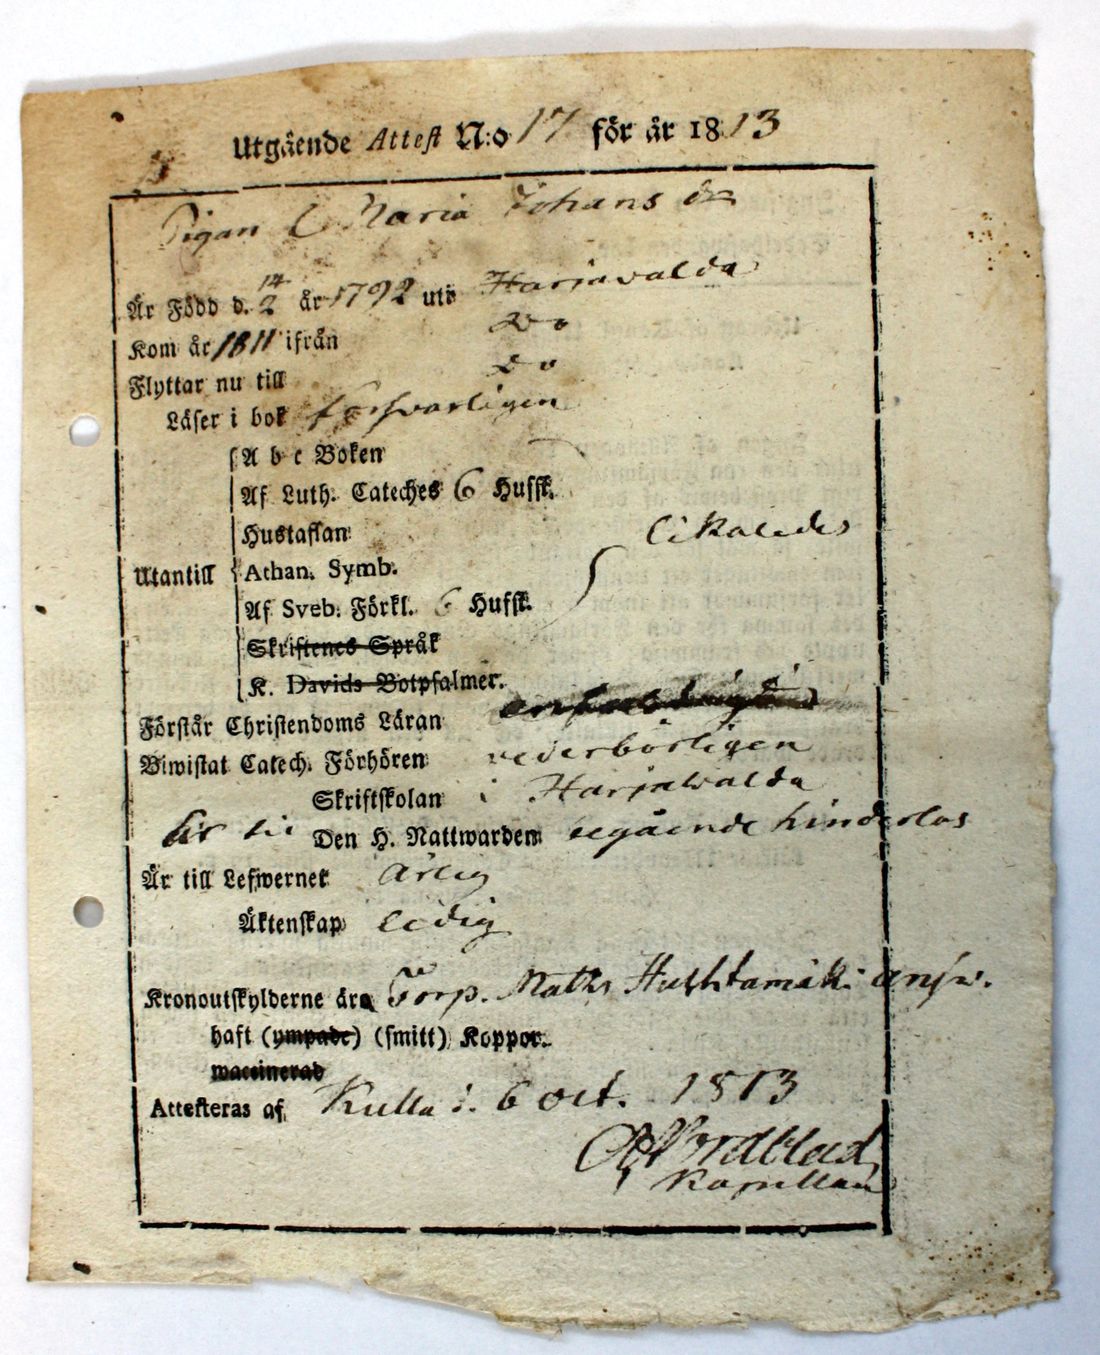 Utgående Attest N:o 17 för år 1813
Pigan Maria Johans dr
Är Född d. 14/2 år 1792 uti Harjawalda
Kom år 1811 ifrån Do
Flyttar nu till Do
Läser i bok försvarligen
A b c Boken
Af Luth. Cateches 6 Hufst.
Hustaflan likaledes
Utantill Athan. Symb.
Af Sveb. Förkl. 6 Hufst.
Skriftenes Språk
K. Davids Botpsalmer.
Förstår Christendoms Läran
Biwistat Catech. Förhören vederbörligen
Skriftskolan i Harjawalda
Den H. Nattwarden begående hinderlös
Är till Lefwernet Ärlig
Äktenskap ledig
Kronoutskylderne äro Torp. Maths answ.
haft (ympade) (smitt) Koppor.
waccinerad
Attesteras af Kulla d. 6 oct. 1813
Nordblad
Kapellan